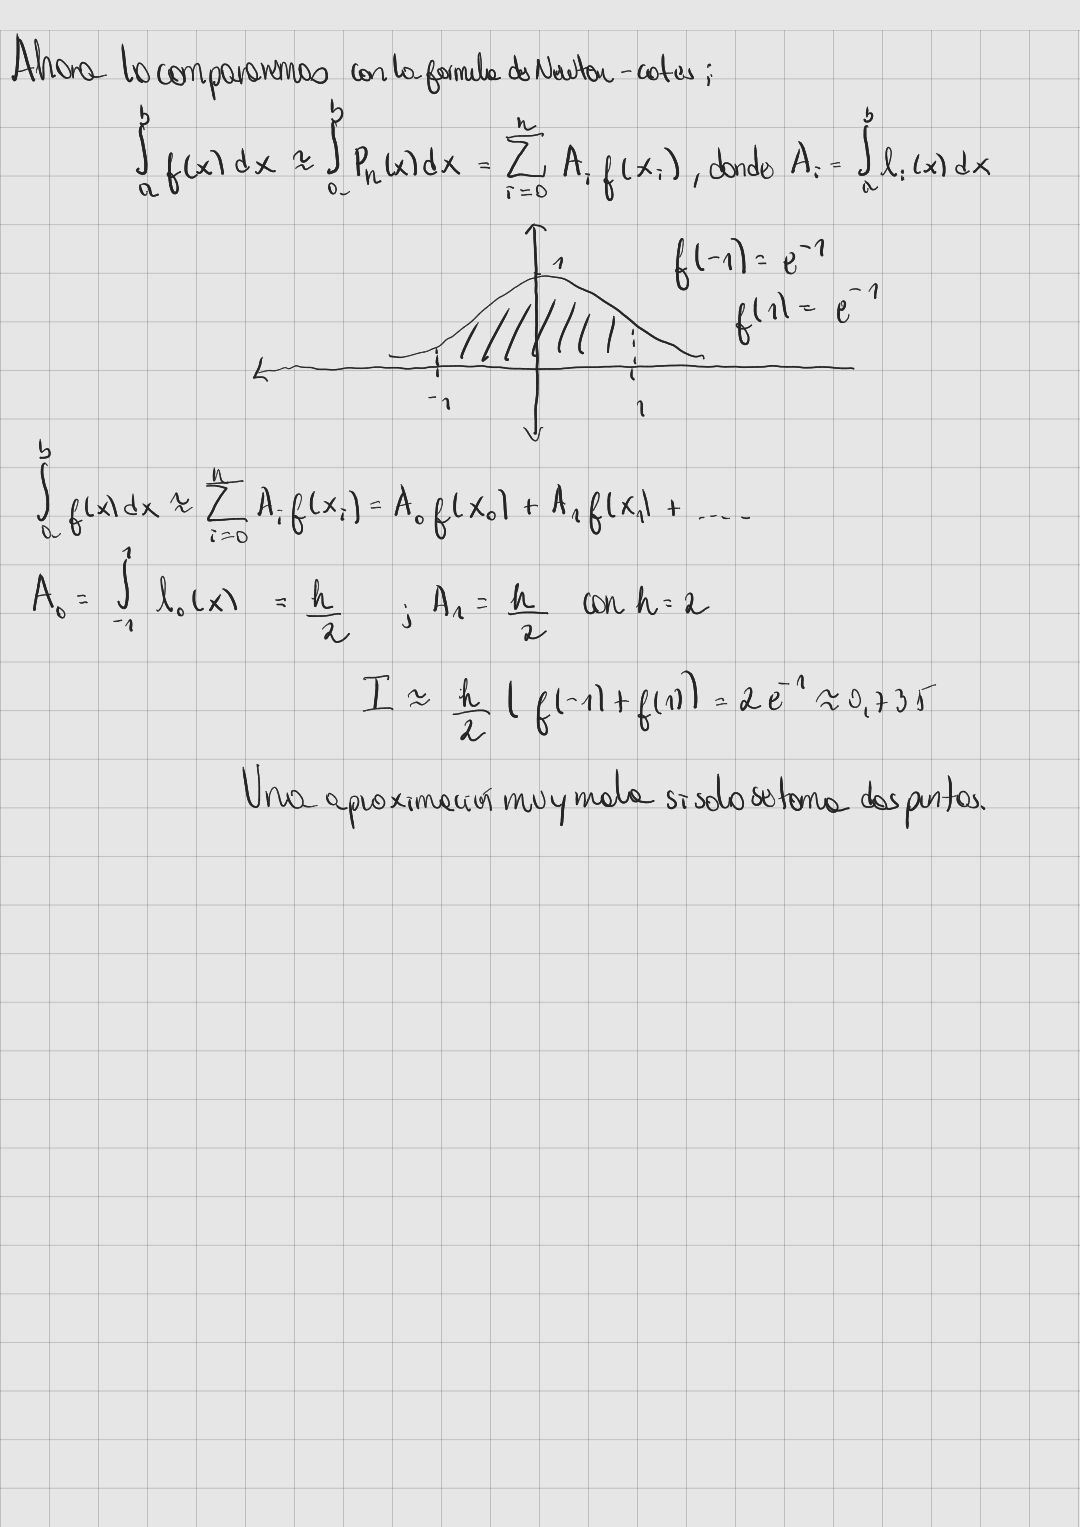 Ahora lo compararemos con la formula de Newton-cotes;
∫_a^b f(x) dx ≈ ∫_a^b P_n(x) dx = ∑_{i=0}^n A_i f(x_i), donde A_i = ∫_a^b l_i(x) dx
1
f(-1) = e^{-1}
f(1) = e^{-1}
-1 1
∫_a^b f(x) dx ≈ ∑_{i=0}^n A_i f(x_i) = A_0 f(x_0) + A_1 f(x_1) + ....
A_0 = ∫_{-1}^1 l_0(x) = h/2 ; A_1 = h/2 con h = 2
I ≈ h/2 ( f(-1) + f(1) ) = 2 e^{-1} ≈ 0,735
Una aproximación muy mala si solo se toma dos puntos.